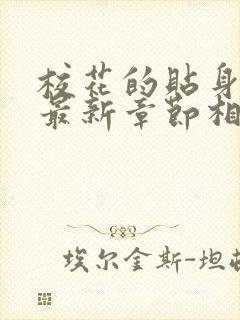 校花的贴身
最新章节相
埃尔金斯-坦